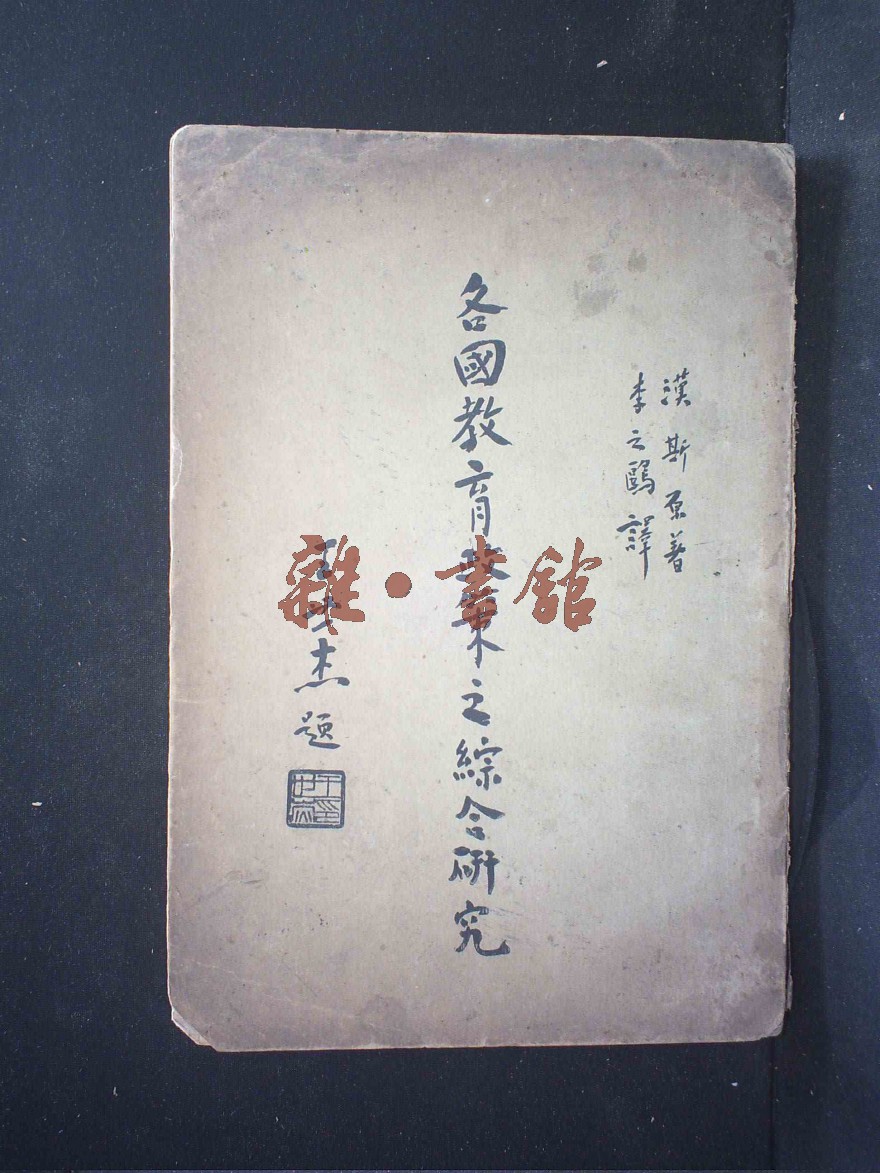 漢斯原著
李之鷗譯
各國教育政策之綜合研究
王世杰題
雜·書館